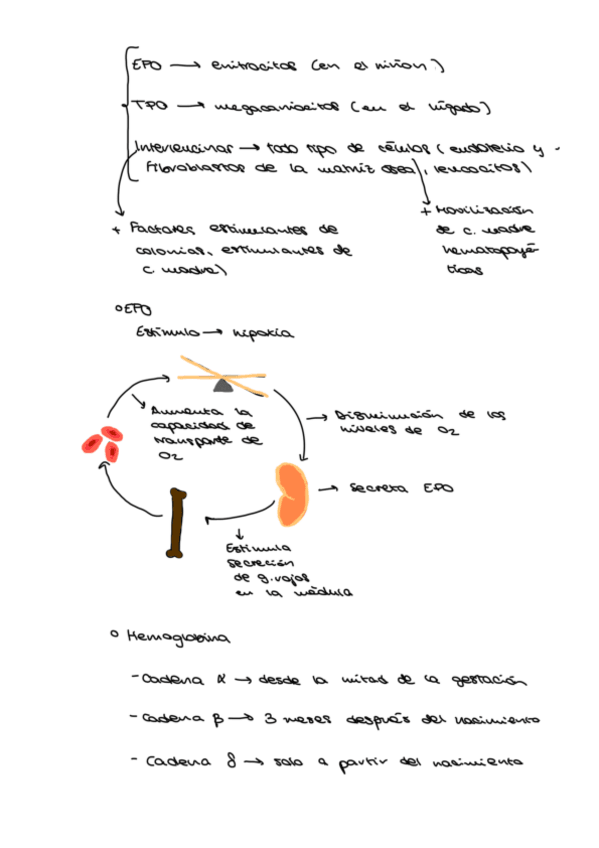 EPO → eritrocitos (en el riñón)
TPO → megacariocitos (en el hígado)
Interleucinas → todo tipo de células (endotelio y
fibroblastos de la matriz ósea, leucocitos)
+ Factores estimulantes de
colonias, estimulantes de
c. madre)
+ Movilización
de c. madre
hematopoyé-
ticas
EPO
Estímulo → hipoxia
Aumenta la
capacidad de
transporte de
O2
→ Disminución de los
niveles de O2
→ Secreta EPO
Estimula
secreción
de g. rojos
en la médula
Hemoglobina
- Cadena α → desde la mitad de la gestación
- Cadena β → 3 meses después del nacimiento
- Cadena δ → solo a partir del nacimiento